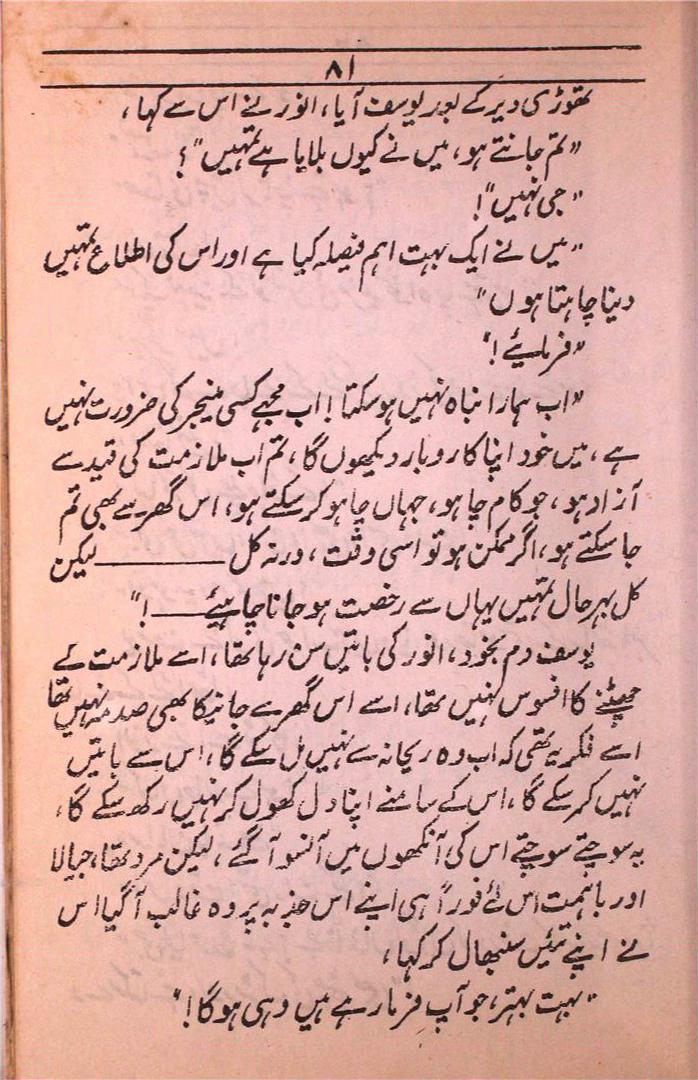 ۸۱
تھوڑی دیر کے بعد یوسف آیا، انور نے اس سے کہا،
"تم جانتے ہو، میں نے کیوں بلایا ہے تمہیں"؟
"جی نہیں"!
"میں نے ایک بہت اہم فیصلہ کیا ہے اور اس کی اطلاع تمہیں
دینا چاہتا ہوں"
"فرمائیے!"
"اب ہمارا نباہ نہیں ہو سکتا! اب مجھے کسی منیجر کی ضرورت نہیں
ہے، میں خود اپنا کاروبار دیکھوں گا، تم اب ملازمت کی قید سے
آزاد ہو، جو کام چاہو، جہاں چاہو کر سکتے ہو، اس گھر سے بھی تم
جا سکتے ہو، اگر ممکن ہو تو اسی وقت، ورنہ کل ــــــــ لیکن
کل بہر حال تمہیں یہاں سے رخصت ہو جانا چاہیئے ــــــ!"
یوسف دم بخود، انور کی باتیں سن رہا تھا، اسے ملازمت کے
چھٹنے کا افسوس نہیں تھا، اسے اس گھر سے جانیکا بھی صدمہ نہیں تھا
اسے فکر یہ تھی کہ اب وہ ریحانہ سے نہیں مل سکے گا، اس سے باتیں
نہیں کر سکے گا، اس کے سامنے اپنا دل کھول کر نہیں رکھ سکے گا،
یہ سوچتے سوچتے اس کی آنکھوں میں آنسو آ گئے، لیکن مرد تھا، جیالا
اور باہمت اس لئے فوراً ہی اپنے اس جذبہ پر وہ غالب آ گیا اس
نے اپنے تئیں سنبھال کر کہا،
"بہت بہتر، جو آپ فرما رہے ہیں وہی ہوگا!"